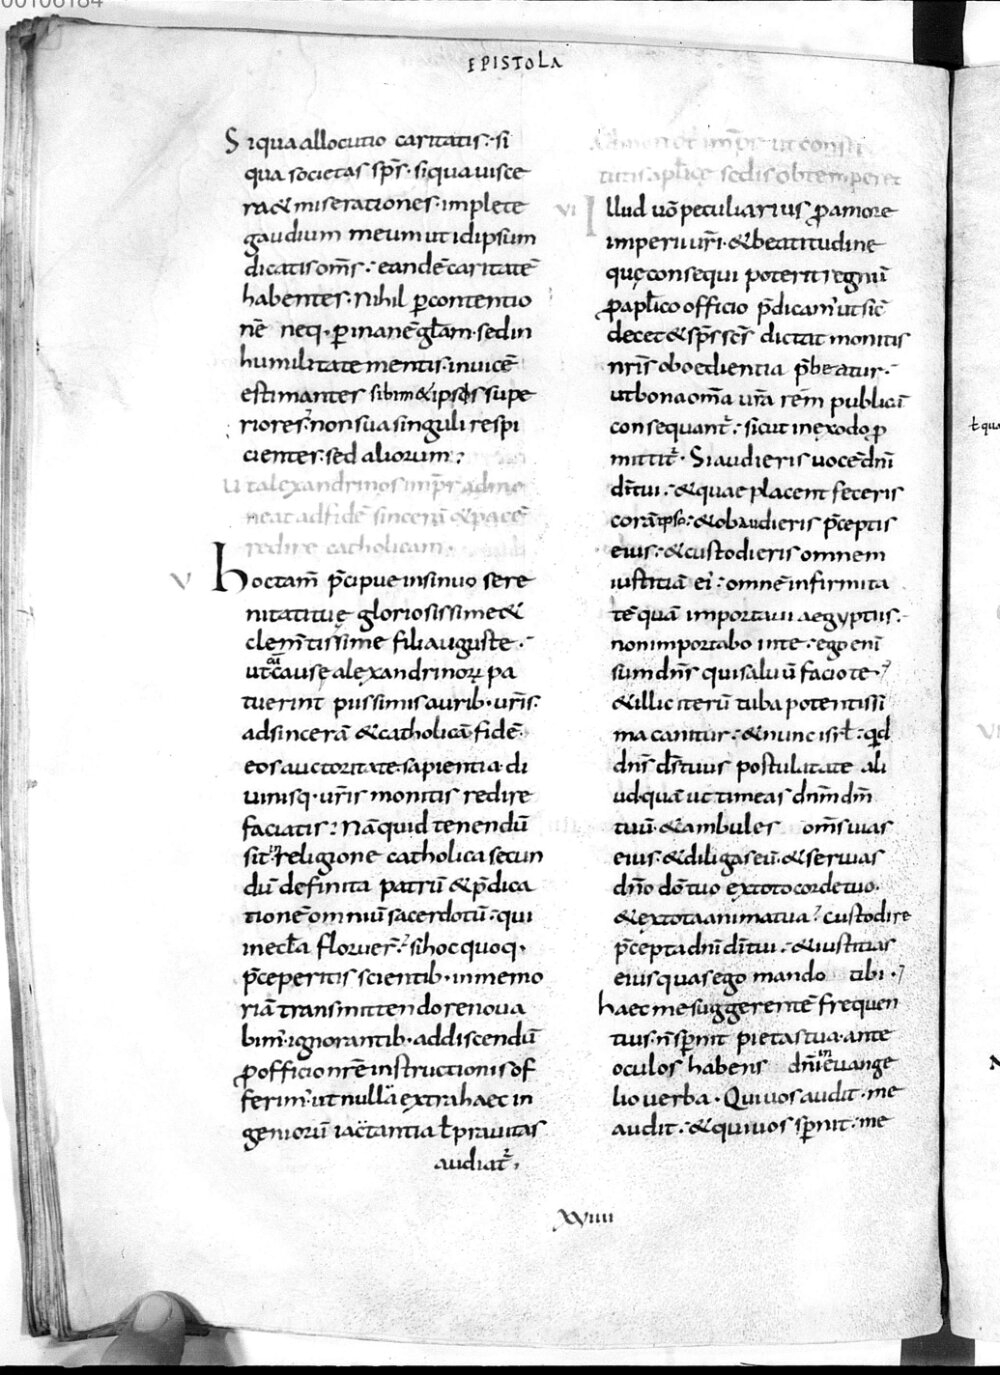 EPISTOLA
Siqua allocutio caritatis· si
qua societas sp̄s· siqua uisce
ra & miserationes· implete
gaudium meum ut idipsum
dicatis om̄s· eandē caritatē
habentes· Nihil p̱ contentio
nē neq· p̱ inanē gl̄am· sed in
humilitate mentis· inuicē
estimantes sibim & ipsos supe
riores· non sua singuli respi
cientes· sed aliorum·
Ut alexandrinos imp̄r admo
neat ad fidē sincerā & pacē
redire catholicam·
V
Hoc tam̄ p̄cipue insinuo sere
nitati tuę gloriosissime &
clem̄tissime fili auguste·
ut cū causę alexandrinoꝝ pa
tuerint piissimis aurib· ur̄is·
ad sincerā & catholicā fidē·
eos auctoritate· sapientia· di
uinisq· ur̄is monitis redire
faciatis· Nā quid tenendū
sit in religione catholica secun
dū definita patrū & p̄dica
tionē omniū sacerdotū· qui
in eccl̄a floruer̄· si hoc quoq·
p̄ceperitis scientib· in memo
riā transmittendo renoua
bim̄· ignorantib· addiscendū
ꝓ officio nr̄e instructionis of
ferim̄· ut nullā extra haec in
geniorū iactantia ł prauitas
audiat᷑·
Admonet imp̄r ut consti
tutis apl̄icę sedis obtemperet
VI
Illud uō peculiarius ꝓ amore
imperii ur̄i· & beatitudine
quę consequi poterit regnū
ꝓ apl̄ico officio p̄dicam̄ ut sic̄
decet & sp̄s sc̄s dictat monitis
nr̄is oboedientia p̄beatur·
ut bona om̄a ur̄a rēm publicā
consequant᷑· sicut in exodo p
mittit᷑· Si audieris uocē dn̄i
dī tui· & quae placent feceris
corā ipso· & obaudieris p̄ceptis
eius· & custodieris omnem
iustitiā ei· omnē infirmita
tē quā importaui aegyptiis·
non importabo in te· ego enī
sum dn̄s qui saluū facio te·
& illic iterū tuba potentissi
ma canitur· & nunc isr̄ł· qd
dn̄s d̄s tuus postulat a te ali
ud quā ut timeas dn̄m dm̄
tuū· & ambules om̄s uias
eius· & diligas eū· & seruias
dn̄o dō tuo ex toto corde tuo·
& ex tota anima tua· custodire
p̄cepta dn̄i dī tui· & iustitias
eius quas ego mando tibi·
haec me suggerente frequen
tius· n̄ sp̱nit pietas tua· ante
oculos habens dn̄i in euange
lio uerba· Qui uos audit· me
audit· & qui uos sp̱nit· me
XXIIII